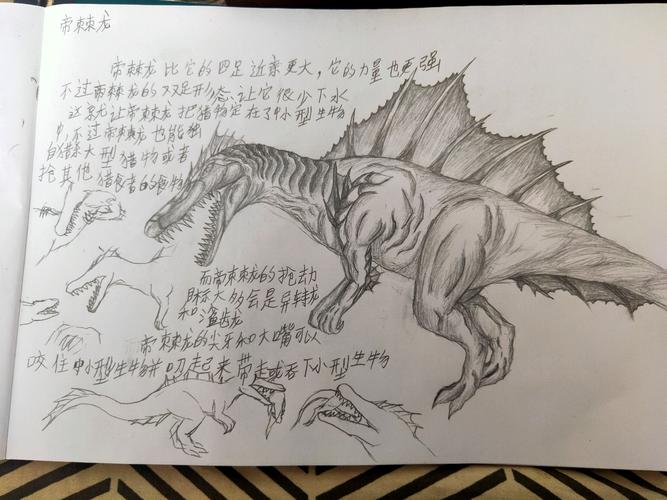 帝棘龙
帝棘龙比它的四足近亲更大,它的力量也更强
不过帝棘龙的双足形态让它很少下水
这就让帝棘龙把猎物定在了中小型生物
中,不过帝棘龙也能独
自猎杀大型猎物或者
抢其他猎食者的食物
而帝棘龙的抢劫
目标大多会是异特龙
和鲨齿龙
帝棘龙的尖牙和大嘴可以
咬住中小型生物并叼起来带走或吞下小型生物